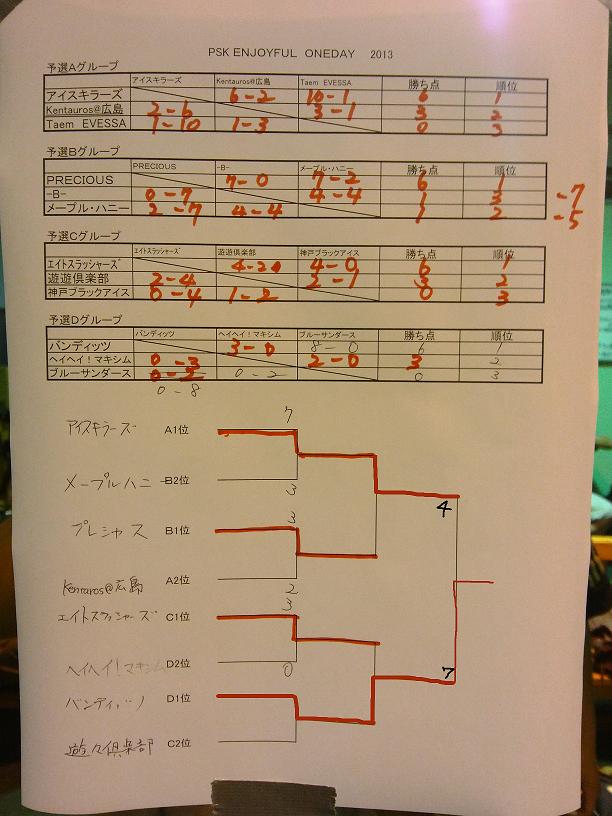 PSK ENJOYFUL ONEDAY 2013
予選Aグループ
アイスキラーズ Kentauros@広島 Taem EVESSA 勝ち点 順位
アイスキラーズ 6-2 10-1 6 1
Kentauros@広島 2-6 3-1 3 2
Taem EVESSA 1-10 1-3 0 3
予選Bグループ
PRECIOUS -B- メープル・ハニー 勝ち点 順位
PRECIOUS 7-0 7-2 6 1
-B- 0-7 4-4 1 3 -7
メープル・ハニー 2-7 4-4 1 2 -5
予選Cグループ
エイトスラッシャーズ 遊遊倶楽部 神戸ブラックアイス 勝ち点 順位
エイトスラッシャーズ 4-2 4-0 6 1
遊遊倶楽部 2-4 2-1 3 2
神戸ブラックアイス 0-4 1-2 0 3
予選Dグループ
バンディッツ ヘイヘイ!マキシム ブルーサンダース 勝ち点 順位
バンディッツ 3-0 8-0 6 1
ヘイヘイ!マキシム 0-3 2-0 3 2
ブルーサンダース 0-2 0-2 0 3
0-8
7
アイスキラーズ A1位
メープルハニー B2位
3
3
プレシャス B1位
4
Kentaros@広島 A2位
2
3
エイトスラッシャーズ C1位
ヘイヘイ!マキシム D2位
0
7
バンディッツ D1位
遊々倶楽部 C2位